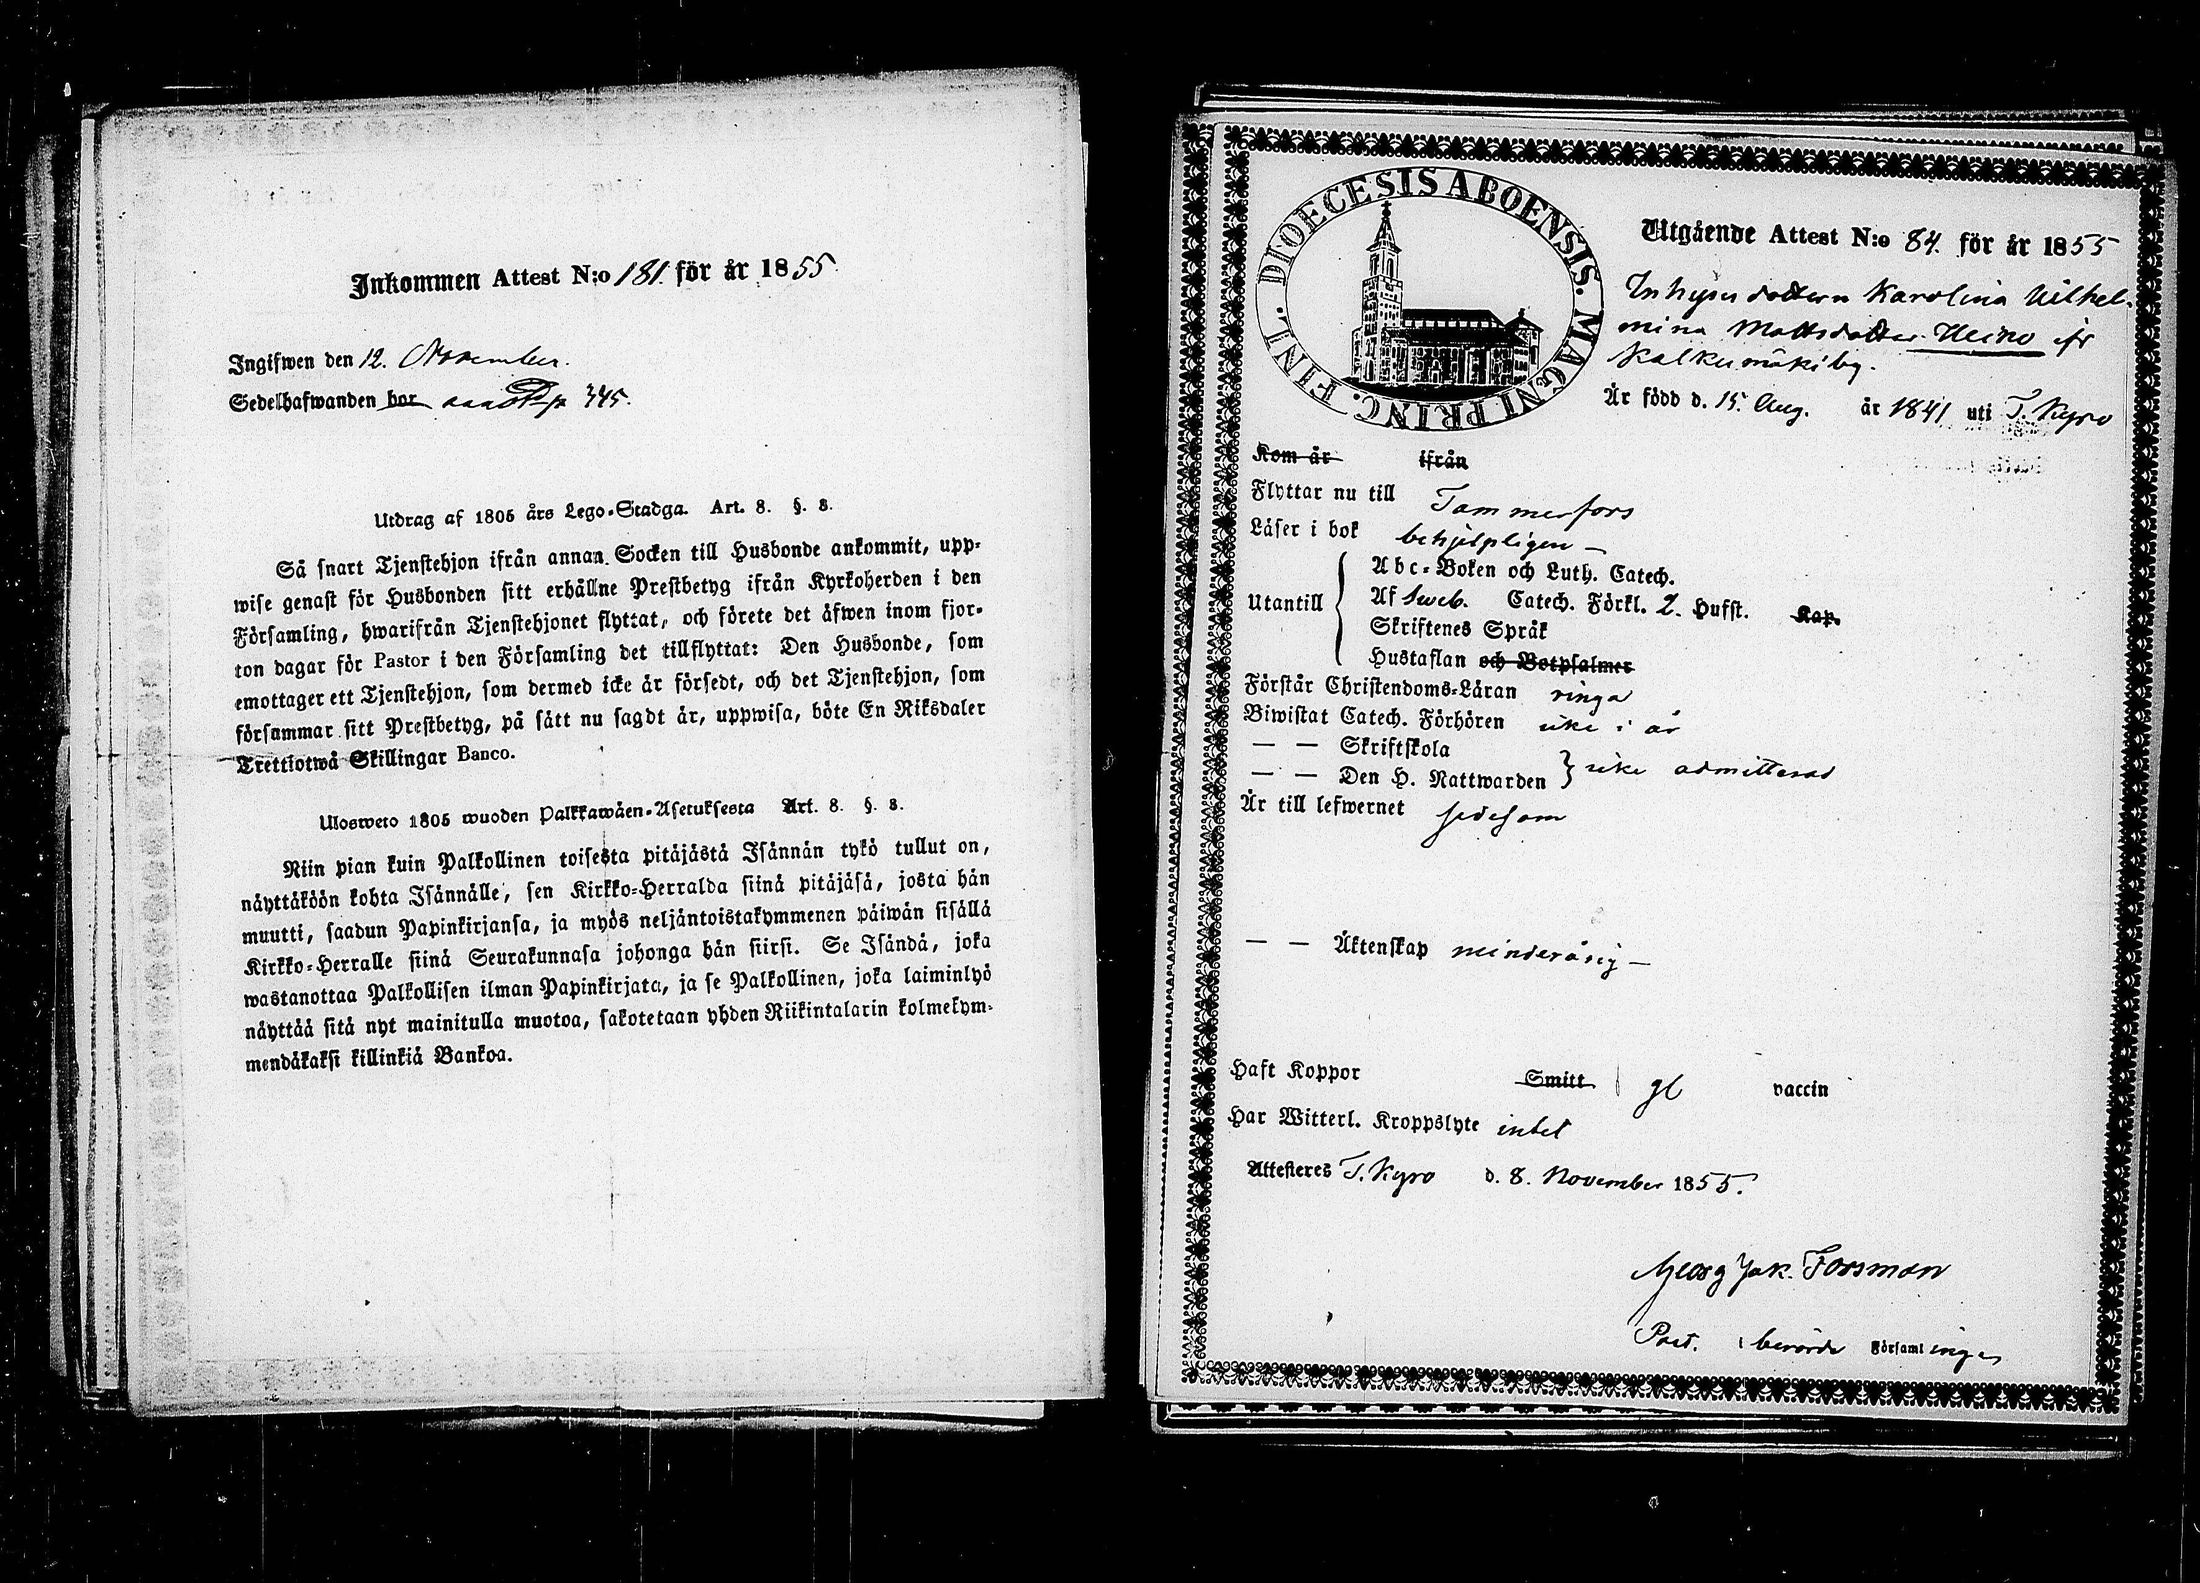 Inkommen Attest N:o 181. för år 1855.
Ingifwen den 12. November.
Sedelhafwanden bor 345.
Utdrag af 1805 års Lego-Stadga. Art. 8. §. 8.
Så snart Tjenstehjon ifrån annan Socken till Husbonde ankommit, upp-
wise genast för Husbonden sitt erhållne Prestbetyg ifrån Kyrkoherden i den
Församling, hwarifrån Tjenstehjonet flyttat, och förete det äfwen inom fjor-
ton dagar för Pastor i den Församling det tillflyttat: Den Husbonde, som
emottager ett Tjenstehjon, som dermed icke är försedt, och det Tjenstehjon, som
försummar sitt Prestbetyg, på sätt nu sagdt är, uppwisa, böte En Riksdaler
Trettiotwå Skillingar Banco.
Ulosweto 1805 wuoden Palkkawäen-Asetuksesta Art. 8. §. 8.
Niin pian kuin Palkollinen toisesta pitäjästä Isännän tykö tullut on,
näyttäköön kohta Isännälle, sen Kirkko-Herralda siinä pitäjäsä, josta hän
muutti, saadun Papinkirjansa, ja myös neljäntoistakymmenen päiwän sisällä
Kirkko-Herralle siinä Seurakunnasa johonga hän siirsi. Se Isändä, joka
wastanottaa Palkollisen ilman Papinkirjata, ja se Palkollinen, joka laiminlyö
näyttää sitä nyt mainitulla muotoa, sakotetaan yhden Riikintalarin kolmekym-
mendäkaksi killinkiä Bankoa.
DIOECESIS ABOENSIS. MAGNI PRINC. FINL.
Utgående Attest N:o 84. för år 1855
Inhyses dottern Karolina Wilhel-
mina Mattsdotter Heino ifr
Kalkunmäki by.
Är född d. 15. Aug. år 1841 uti T. Kyro
Kom år ifrån
Flyttar nu till Tammerfors
Läser i bok behjelpligen —
Utantill
Abc-Boken och Luth. Catech.
Af Sweb. Catech. Förkl. 2. Hufst. Kap.
Skriftenes Språk
Hustaflan och Botpsalmer
Förstår Christendoms-Läran ringa
Biwistat Catech. Förhören icke i år
— — Skriftskola
— — Den H. Nattwarden } icke admitterad
Är till lefwernet sedesam
— — Äktenskap minderårig —
Haft Koppor Smitt gl vaccin
Har Witterl. Kroppslyte intet
Attesteres T. Kyro d. 8. November 1855.
Georg Jak. Forsman
Past. i berörde Församlingen